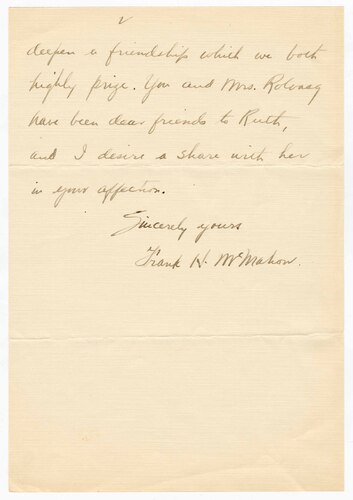 2
deepen a friendship which we both
highly prize. You and Mrs.
have been dear friends to Ruth,
and I desire a share with her
in your affection.
Sincerely yours
Frank H. McMahon.